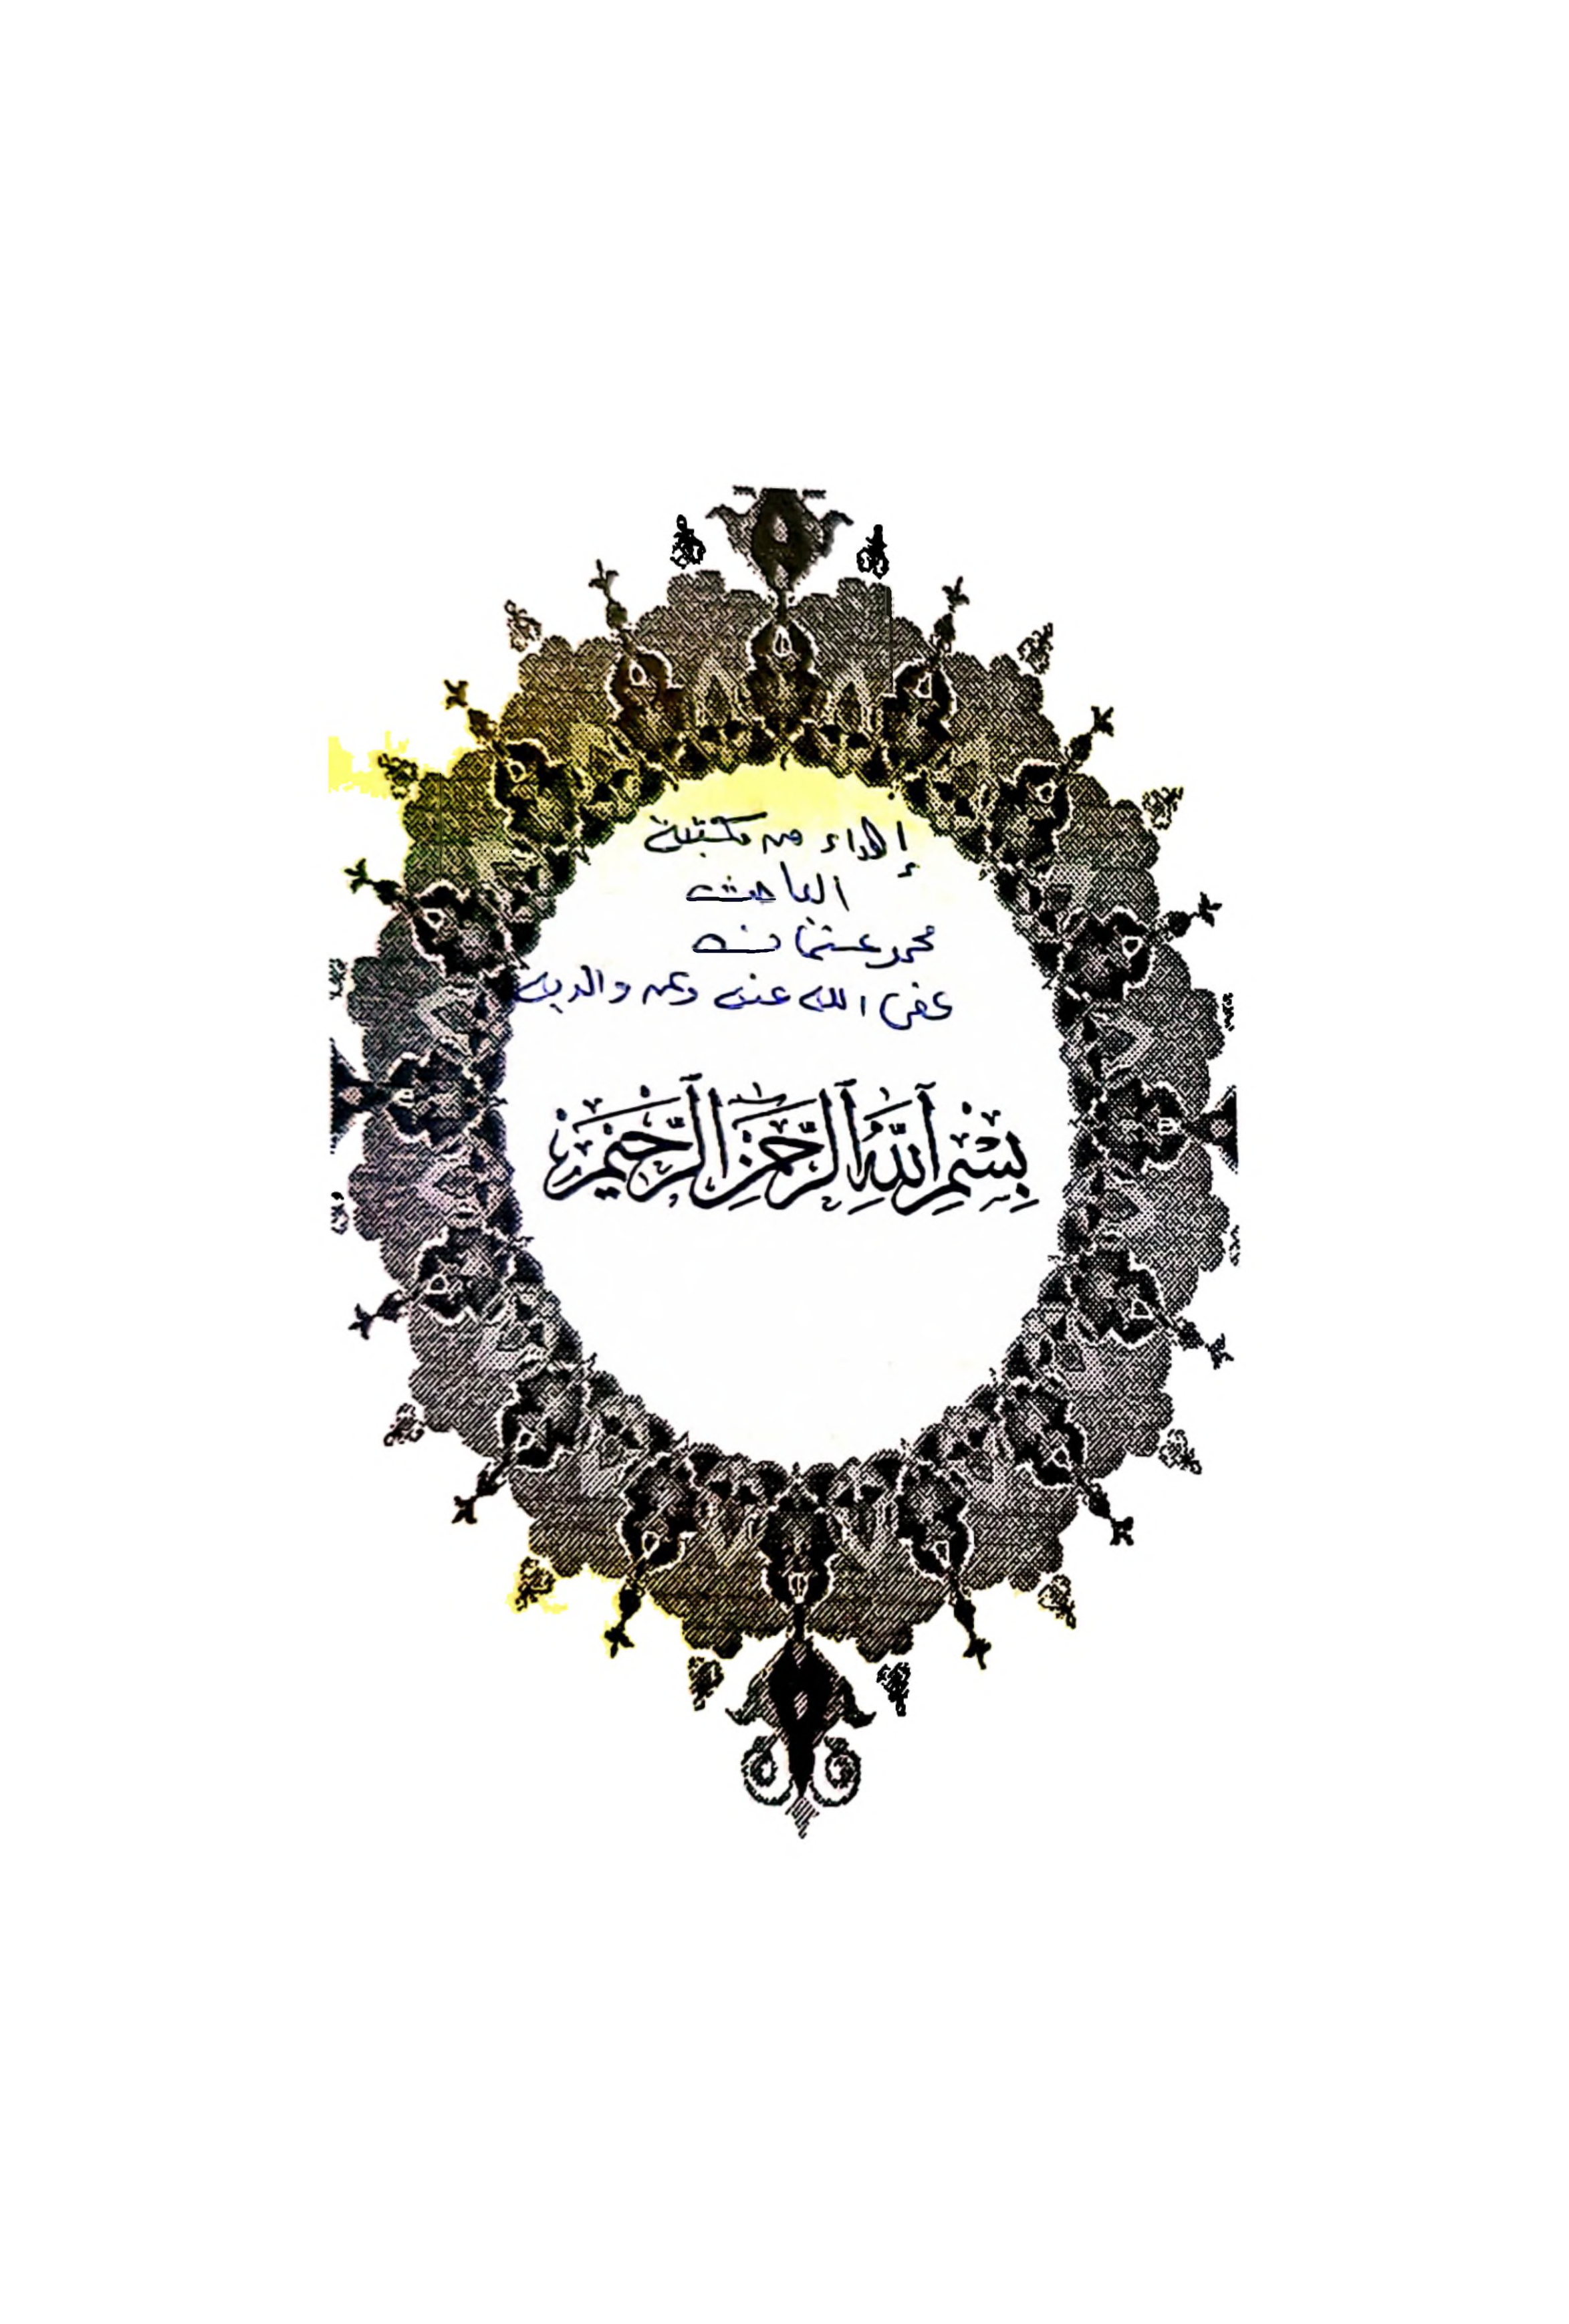 إهداء من مكتبة
الباحث
محمد عثمان
عفى الله عنه وعن والديه
بِسْمِ ٱللَّهِ ٱلرَّحْمَٰنِ ٱلرَّحِيمِ